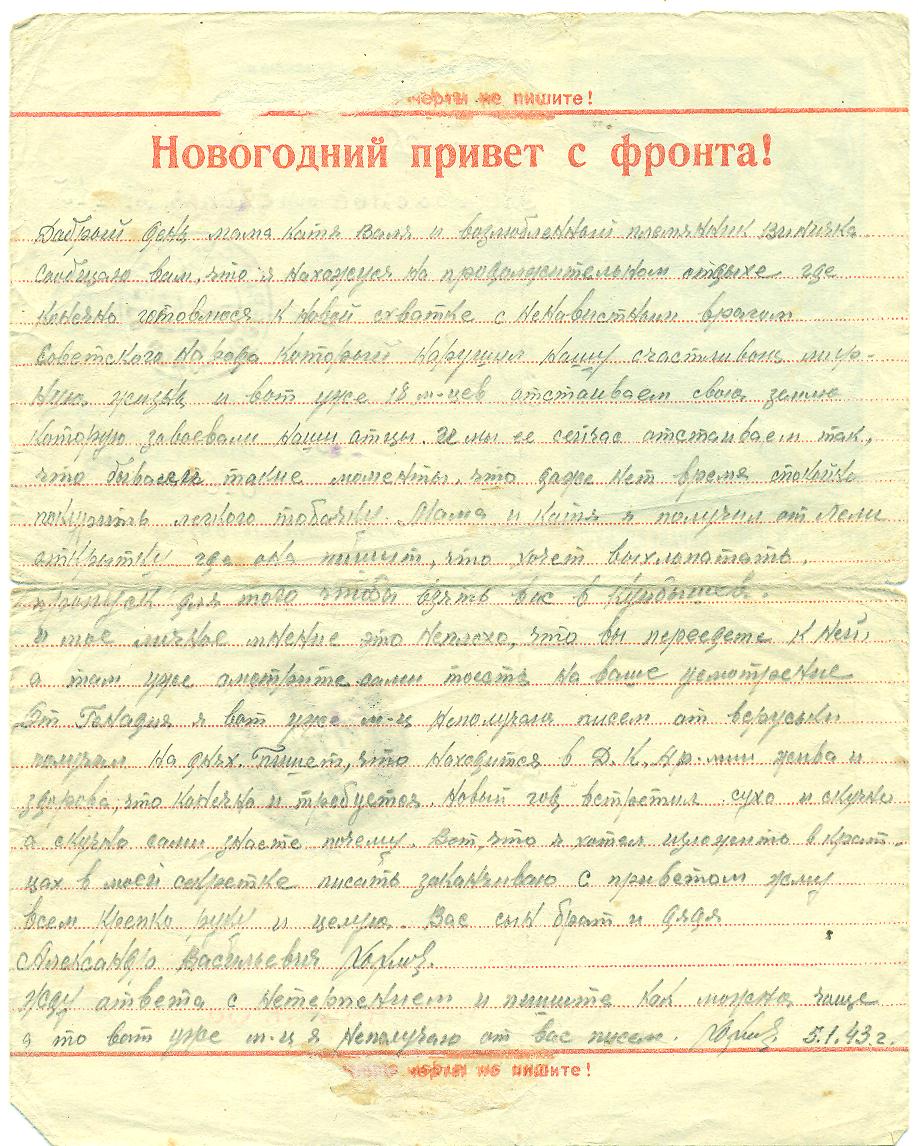 черты не пишите!
Новогодний привет с фронта!
Добрый день мама катя Валя и возлюбленный племянник виничка
сообщаю вам, что я нахожуся на продолжительном отдыхе где
конечно готовлюся к новой схватке с ненавистным врагом
Советского народа который нарушил нашу счастливою мир-
ную жизнь и вот уже 18 м-цев отстаиваем свою землю
которую завоевали наши отцы. И мы ее сейчас отстаиваем так,
что бывают такие моменты, что даже нет время спокойно
покурить легкого тобачку. Мама и катя я получил от Лели
открытку где она пишет, что хочет выхлопатать
пропуск для того чтобы взять вас в Куйбышев.
и мое личное мнение это неплохо, что вы переедете к ней
а там уже смотрите сами тоесть на ваше усмотрение
От Генадия я вот уже м-ц неполучаю писем от веруськи
получил на днях. Пишет, что находится в Д.К. жива и
здорова, что конечно и требуется. Новый год встретил сухо и скучно
а скучно сами знаете почему. Вот, что я хотел изложить в крат-
цах в моей секретке писать заканчиваю с приветом жму
всем крепко руку и целую. Вас сын брат и дядя
Александр Васильевич
Жду ответа с нетерпением и пишите как можно чаще
а то вот уже м-ц я неполучаю от вас писем. 5.1.43 г.
черты не пишите!